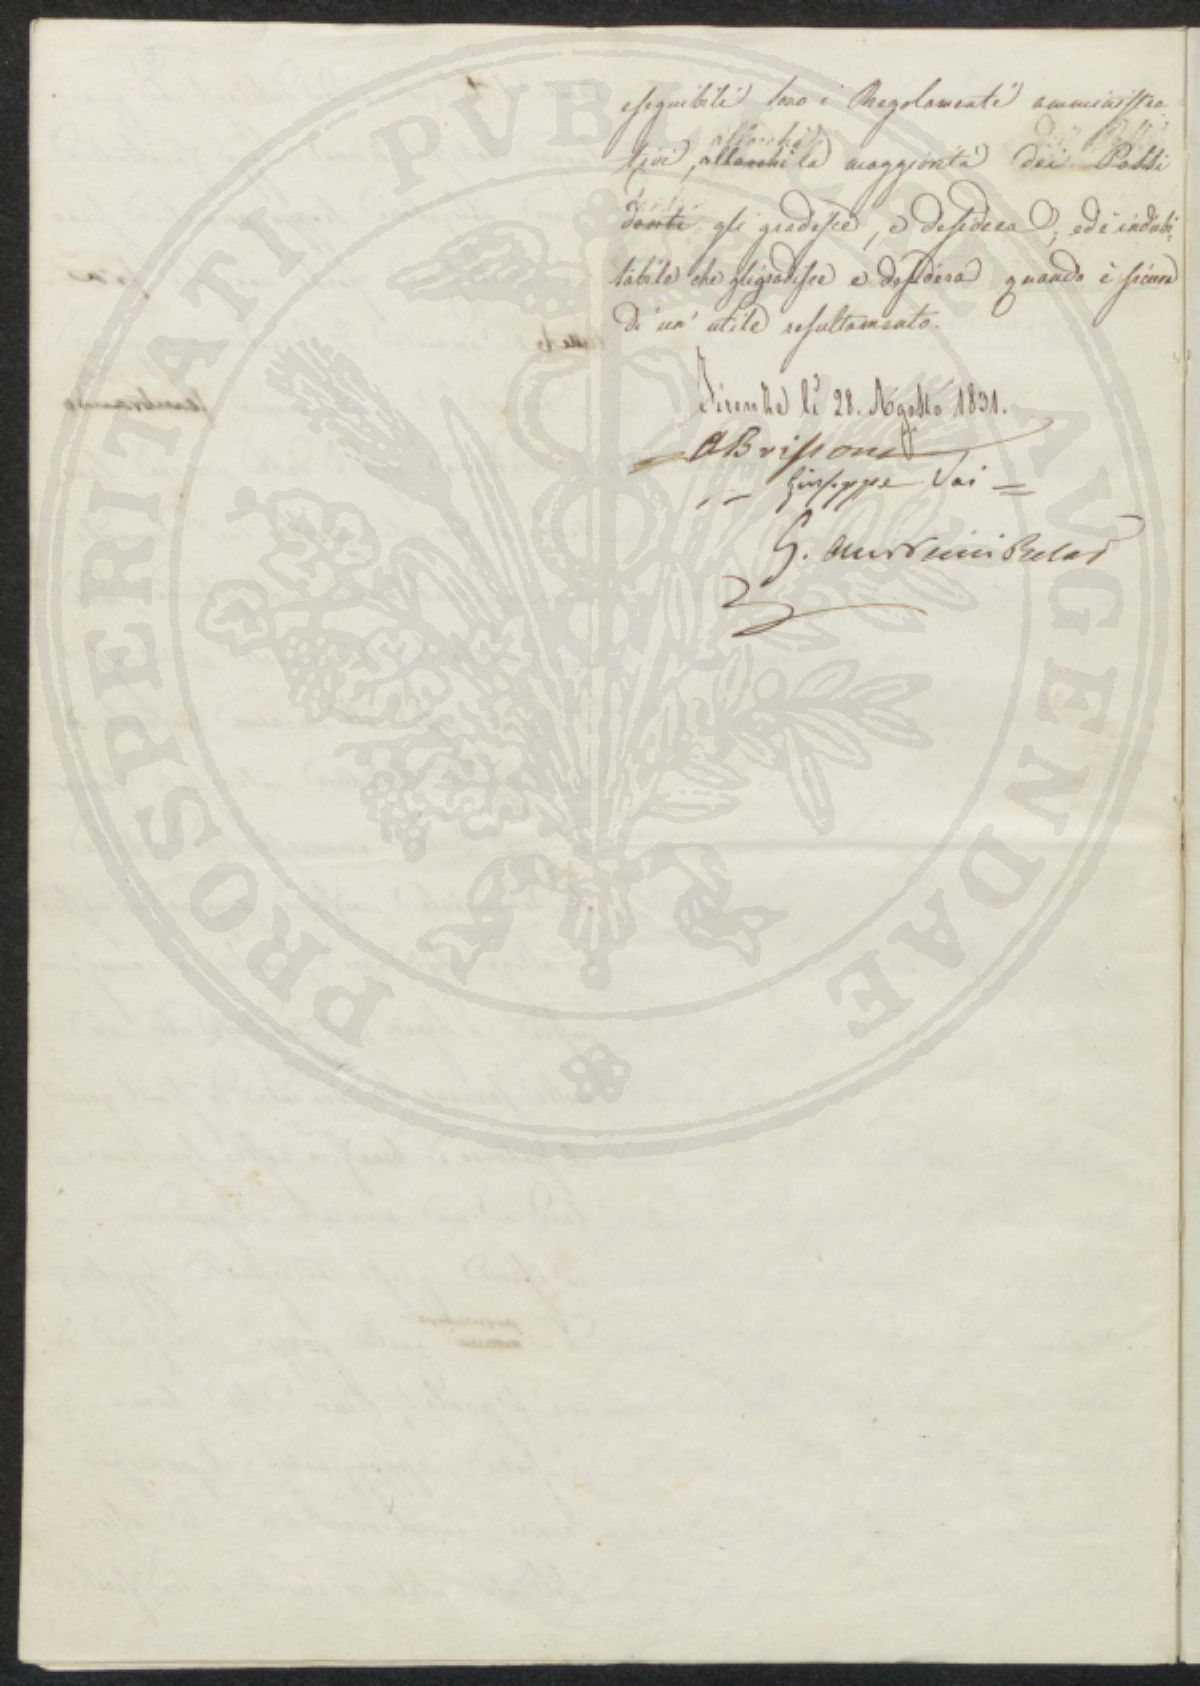 eseguibili sono i Regolamenti amministra
tivi, allorchè la maggiorità dei Possi
denti gli gradisce, e desidera; ed è indubi
tabile che gli gradisce e desidera quando è sicura
di un' utile resultamento.
Firenze li 28. Agosto 1831.
A Brissoni
Giuseppe Vai
G.
PROSPERITATI PVBLICAE AVGENDAE